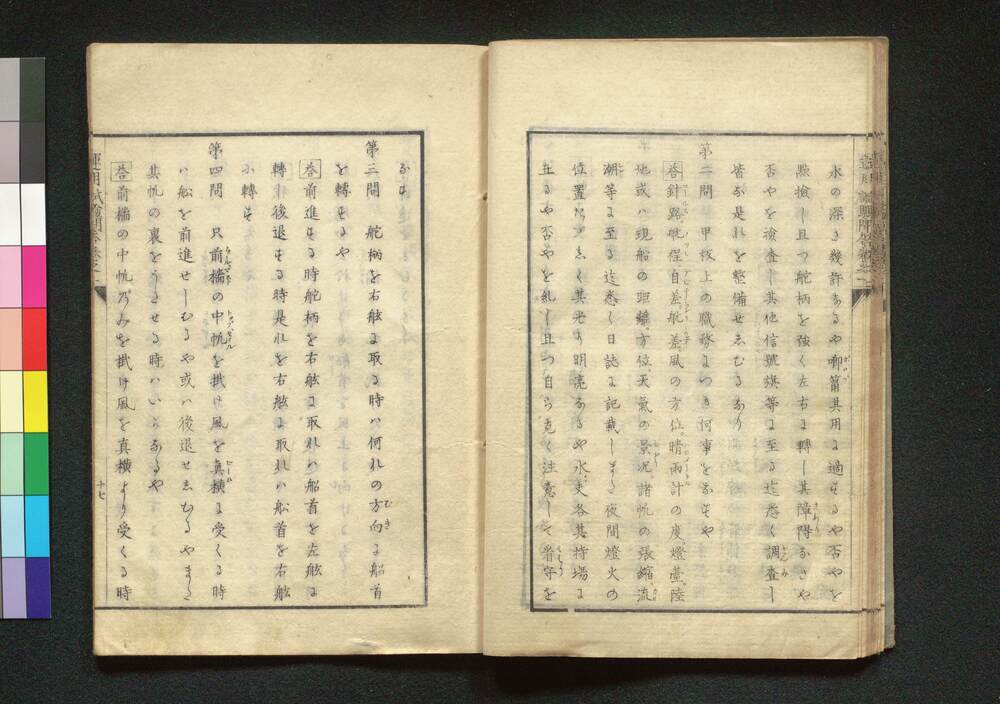 水の深き幾許あるや喞筩其用に適するや否やを
點撿し且つ舵柄を強く左右に轉し其障碍なきや
否やを撿査し其他信號旗等に至る迄悉く調査し
皆な是れを整備せしむるなり
第二問 甲板上の職務につき何事をなすや
答 針路航程自差航差風の方位晴雨計の度燈臺陸
地或ハ現船の距離方位天氣の景况諸帆の張縮流
潮等に至る迄悉く日誌に記載しまた夜間燈火の
位置たゞしく其光り明亮なるや水夫各其持場に
在るや否やを糺し且つ自ら克く注意して看守を
なす
第三問 舵柄を右舷に取る時ハ何れの方向に船首
を轉するや
答 前進する時舵柄を右舷に取れハ船首を左舷に
轉し後退する時是れを右舷に取れハ船首を右舷
に轉す
第四問 只前檣の中帆を拭け風を真横に受くる時
ハ船を前進せしむるや或ハ後退せしむるやまた
其帆の裏をうたせる時ハいかなるや
答 前檣の中帆のみを拭け風を真横より受くる時
十七